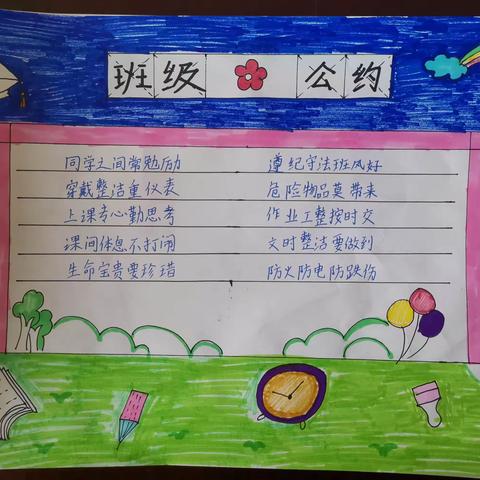 班级公约
同学之间常勉励 遵纪守法班风好
穿戴整洁重仪表 危险物品莫带来
上课专心勤思考 作业工整按时交
课间休息不打闹 文时整洁要做到
生命宝贵要珍惜 防火防电防跌伤